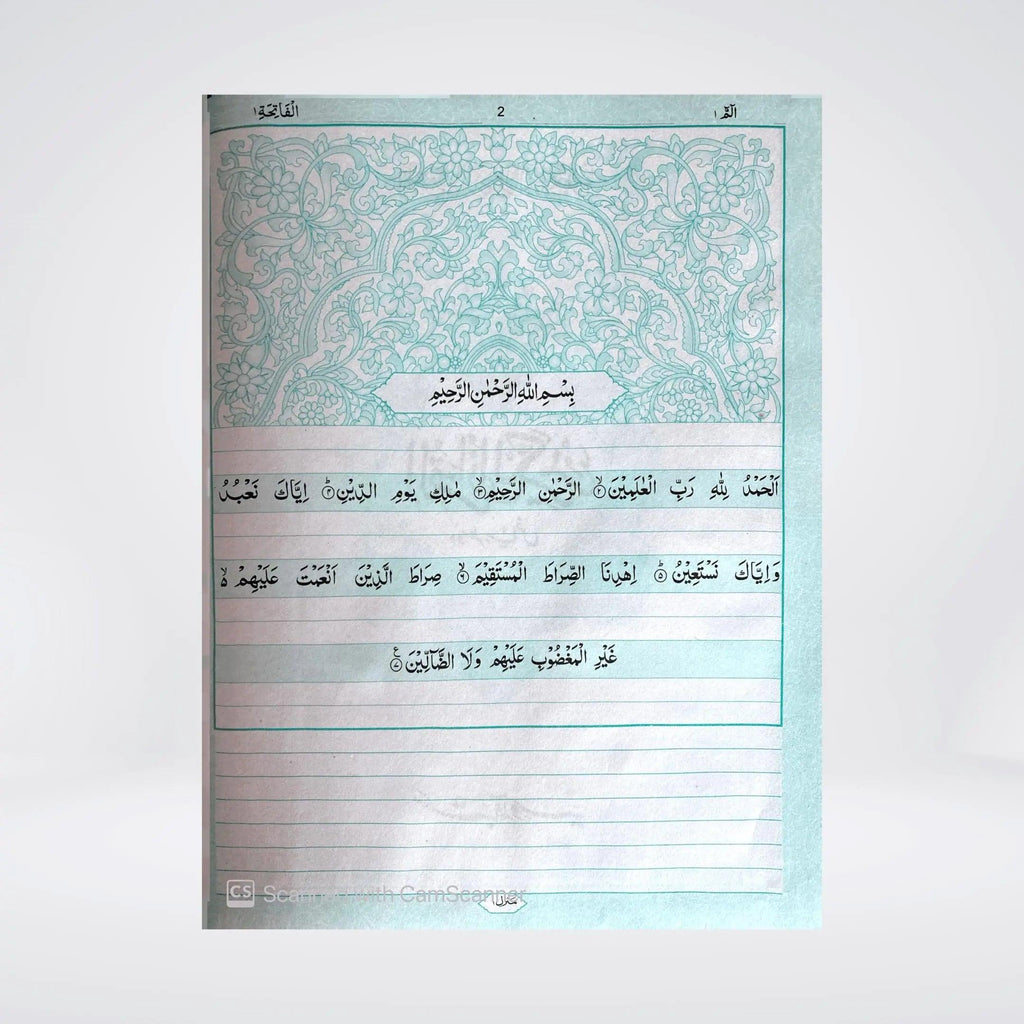 الٓمّٓ ١ 2 اَلْفَاتِحَةِ ١
بِسْمِ اللّٰهِ الرَّحْمٰنِ الرَّحِيْمِ
اَلْحَمْدُ لِلّٰهِ رَبِّ الْعٰلَمِيْنَۙ۲ الرَّحْمٰنِ الرَّحِيْمِۙ۳ مٰلِكِ يَوْمِ الدِّيْنِؕ۴ اِيَّاكَ نَعْبُدُ
وَاِيَّاكَ نَسْتَعِيْنُؕ۵ اِهْدِنَا الصِّرَاطَ الْمُسْتَقِيْمَۙ۶ صِرَاطَ الَّذِيْنَ اَنْعَمْتَ عَلَيْهِمْ ۙ۬
غَيْرِ الْمَغْضُوْبِ عَلَيْهِمْ وَلَا الضَّآلِّيْنَ۷ ع
CS Scanned with CamScanner
منزل ١